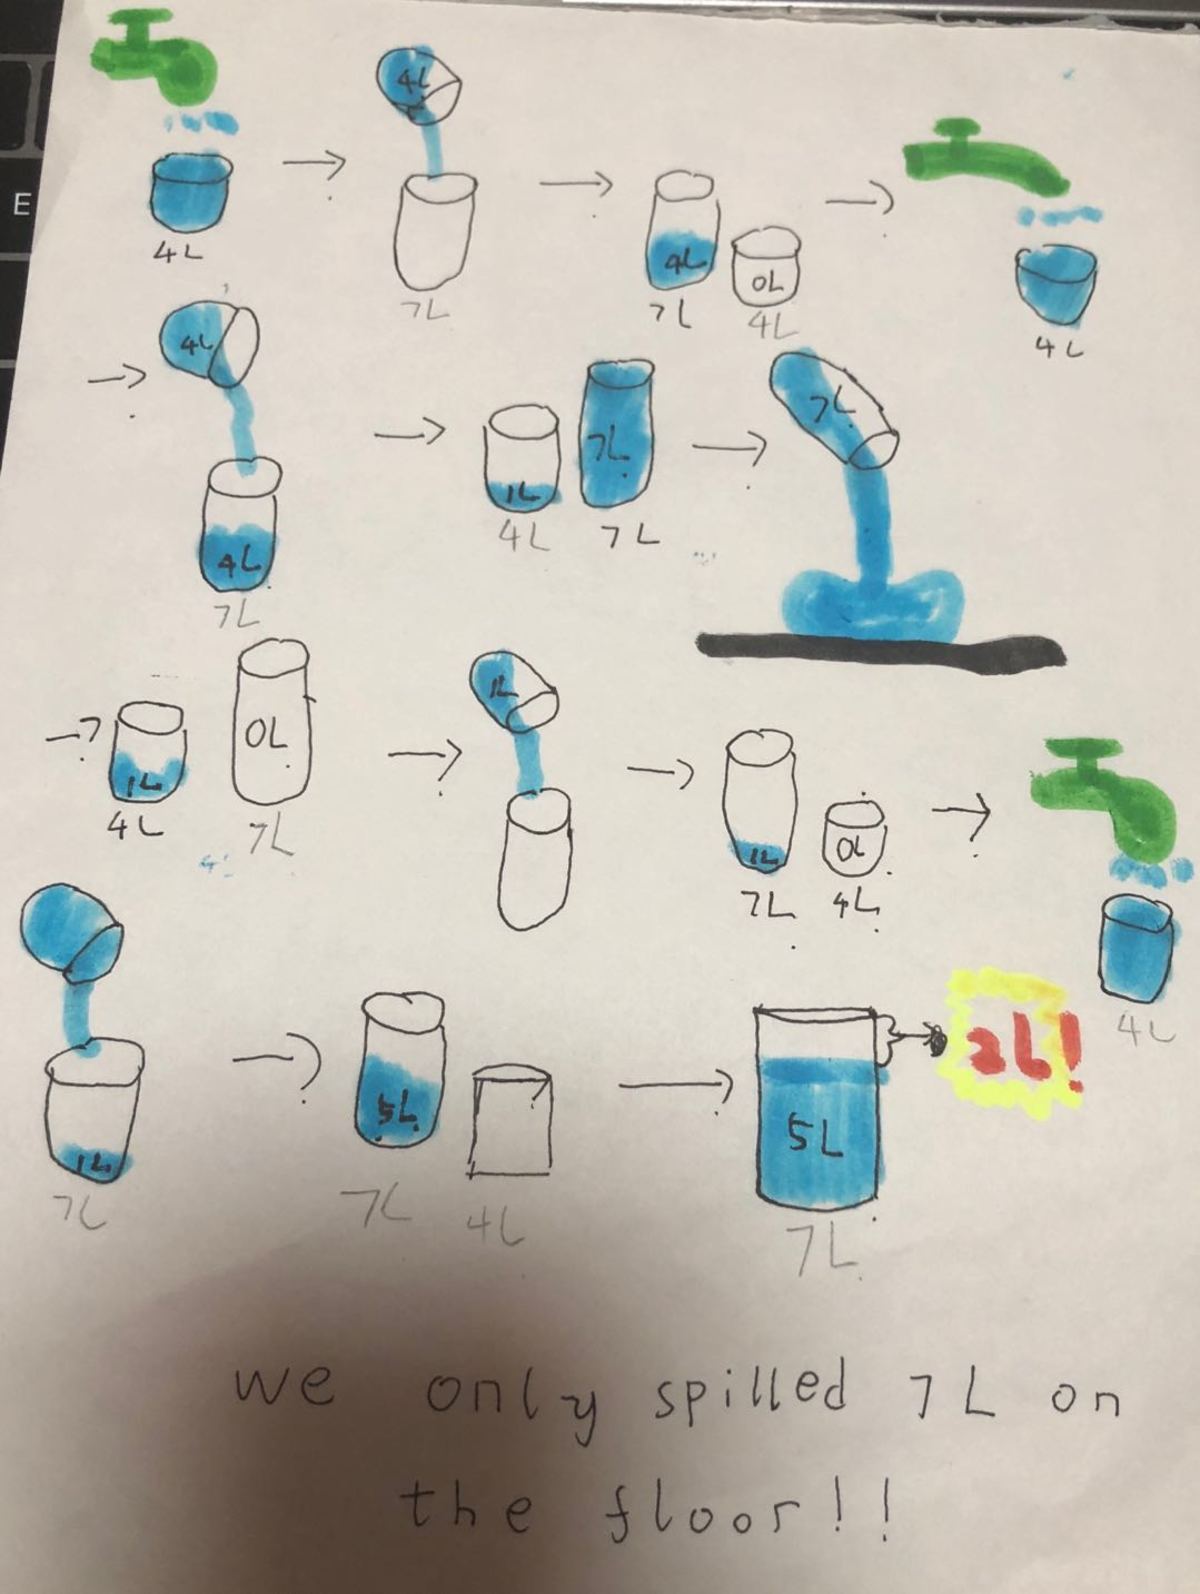 E
4L
4L
7L
4L
7L
0L
4L
4L
4L
4L
7L
1L
4L
7L
7L
7L
1L
4L
0L
7L
1L
1L
7L
0L
4L
4L
1L
7L
5L
7L
4L
5L
7L
2L!
we only spilled 7L on
the floor!!